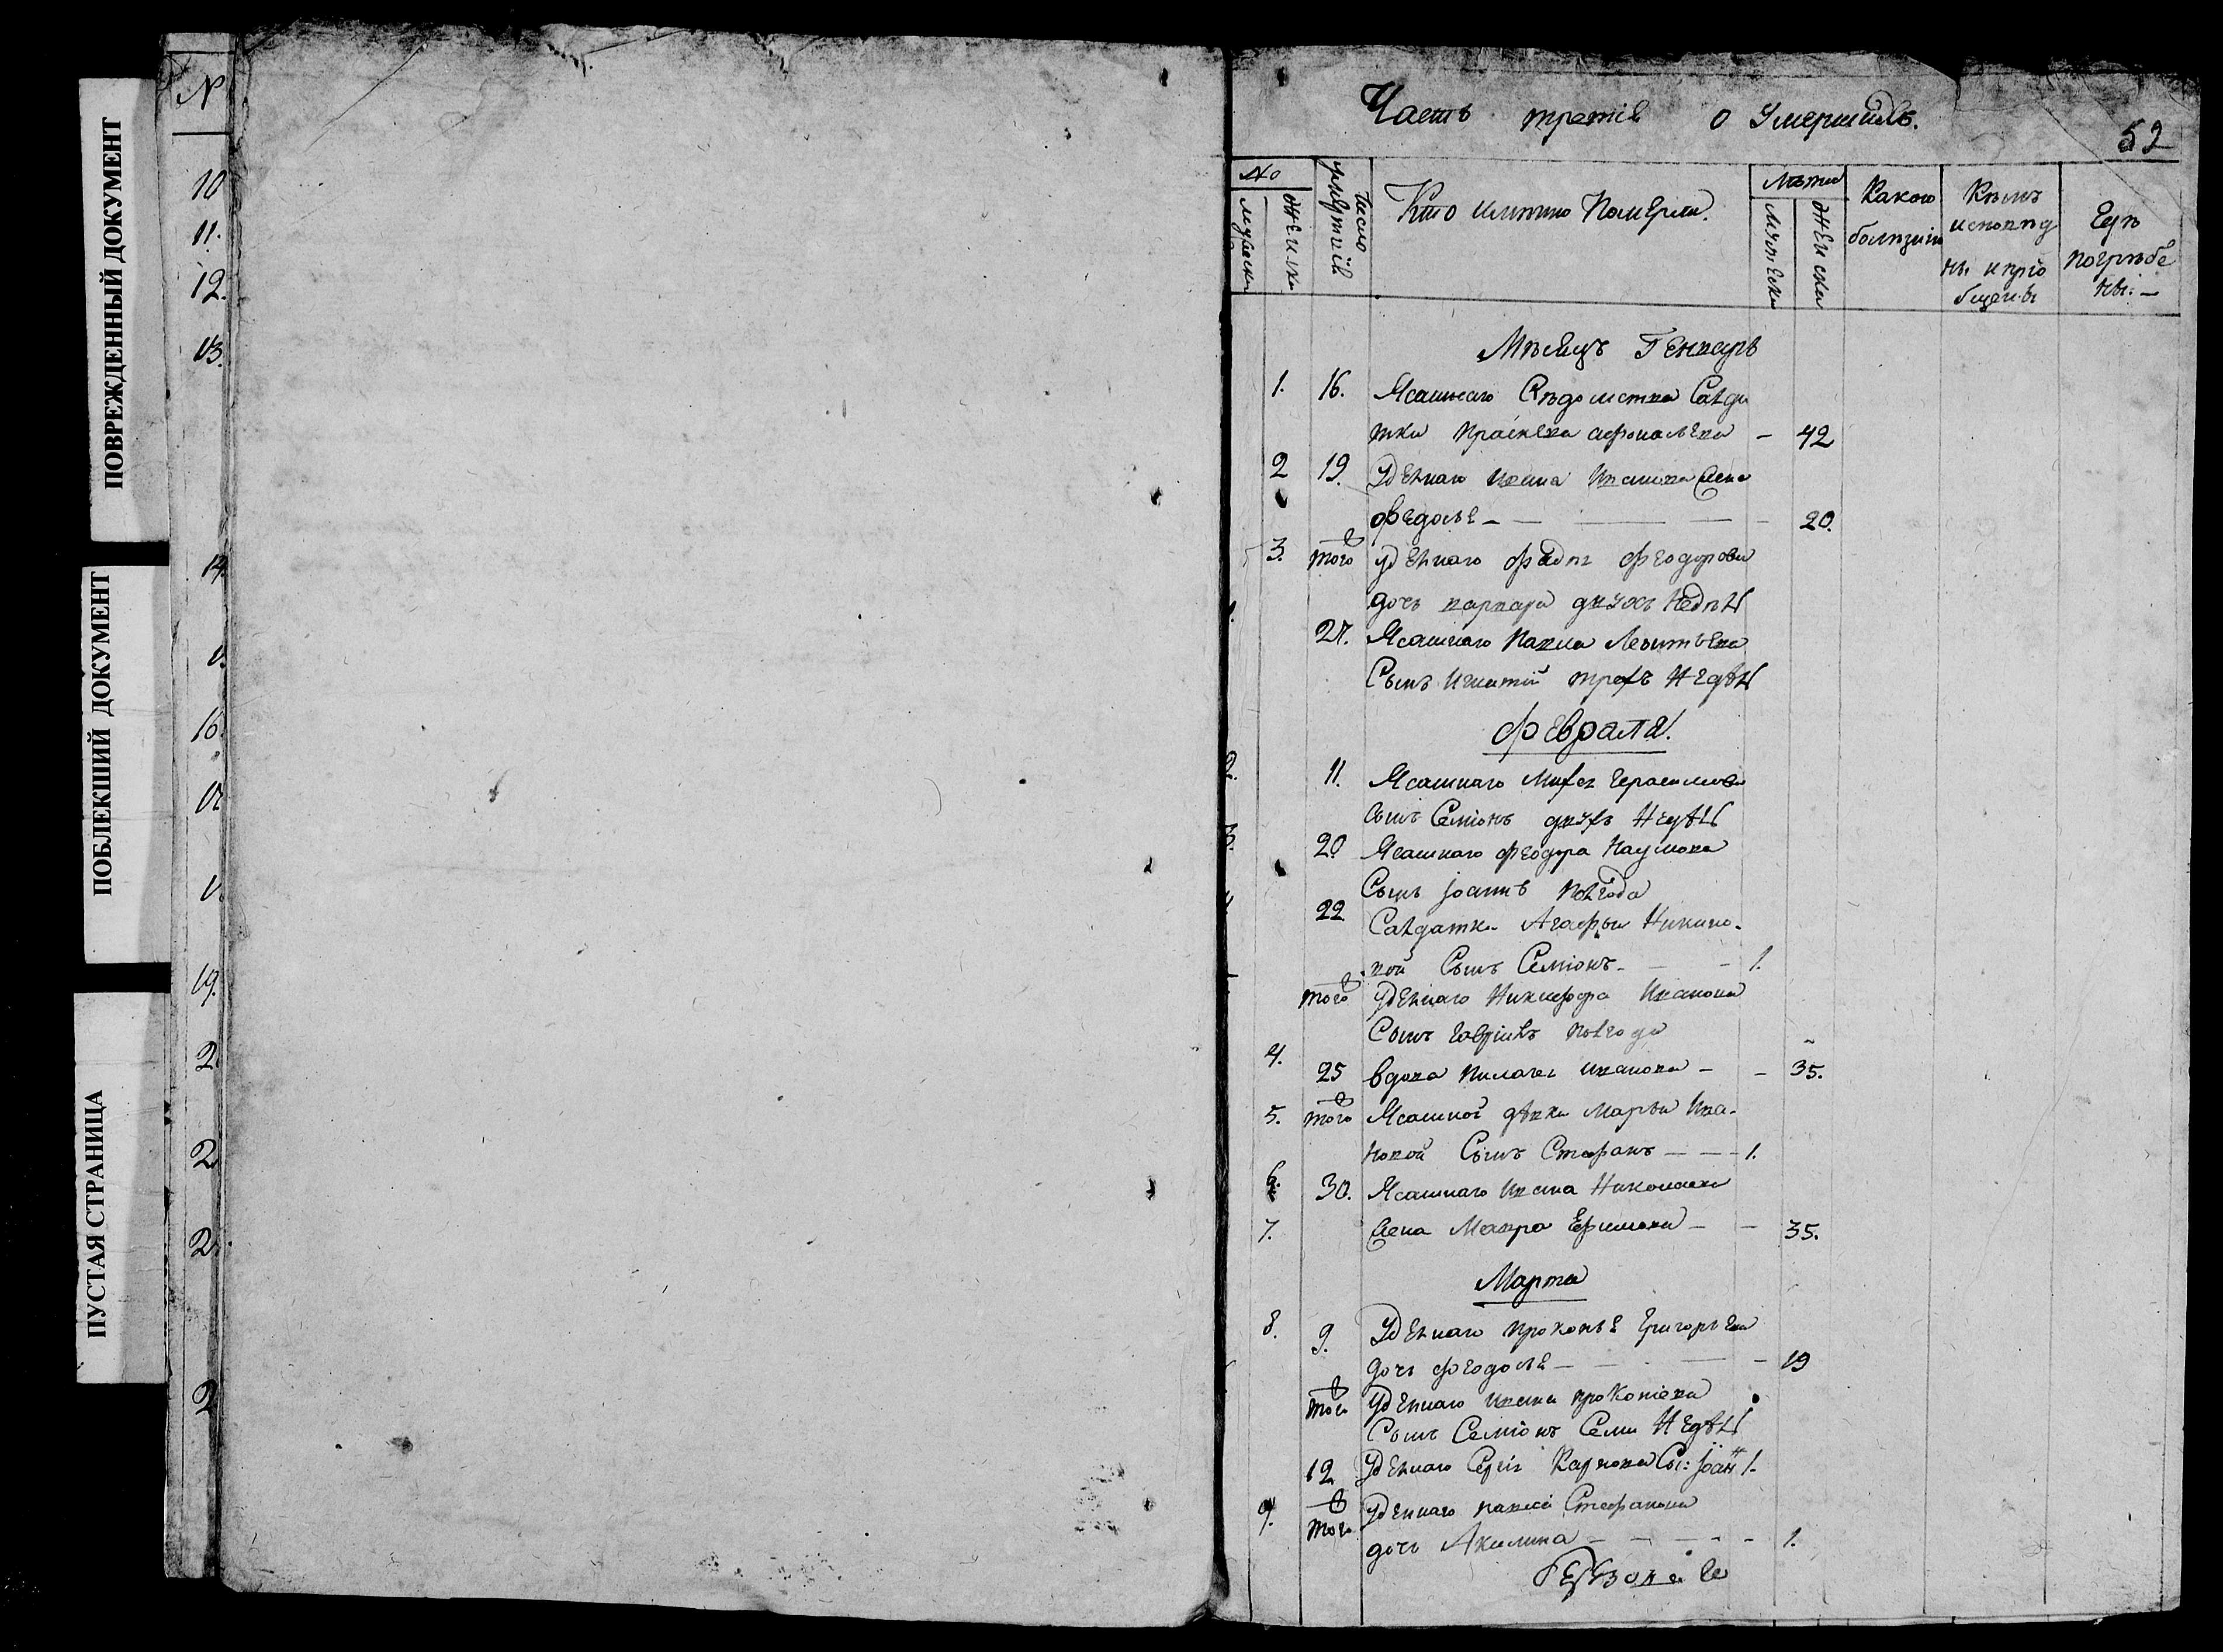 ПОВРЕЖДЕННЫЙ ДОКУМЕНТ
ПОБЛЕКШИЙ ДОКУМЕНТ
ПУСТАЯ СТРАНИЦА
N
10
11.
12.
13.
14.
16.
19.
2
2
2
2
Часть третія о Умершихъ.
52
No
мужеска
женска
Число
Кто имянно Померли.
Лѣта
Мужеска
Женска
Какою
болѣзнію
Кѣмъ
исповѣд
ны и прiо
бщены
Гдѣ
погрѣбе
ны.
Мѣсяцъ Генварь
1. 16. Ясашнаго Вѣдомства Салда
тка Прасковя Афонасьева - 42
2 19. Удѣлнаго Ивана Иванова жена
Федосья - 20.
3. того Удѣлнаго Фадѣя Феодорова
дочь варвара двухъ недѣль
27. Ясашнаго Павла Леонтьева
Сынъ Игнатій трехъ недѣль
Февраля.
11. Ясашнаго Михея Герасимова
сынъ Семіонъ двухъ недѣль
20 Ясашнаго Феодора Наумова
Сынъ Іоаннъ полгода
22 Салдатки Агафьи
вой Сынъ Семіонъ - 1.
того Удѣлнаго Никифора Иванова
Сынъ Гавріилъ полгода
4. 25 вдова Пелагея Иванова - 35.
5. того Ясашной дѣвки Марьи Ива-
новой Сынъ Стефанъ - 1.
6. 30. Ясашнаго Ивана Николаева
7. жена Мавра Ефимова - 35.
Марта
8. 9. Удѣлнаго Прокопья Григорьева
дочь Феодосья - 19
того Удѣлнаго Ивана Прокопіева
Сынъ Семіонъ Семи недѣль
12 Удѣлнаго Сергія Карпова Сы: Іоанн 1.
9. того Удѣлнаго Стефанова
дочь Акилина - 1.